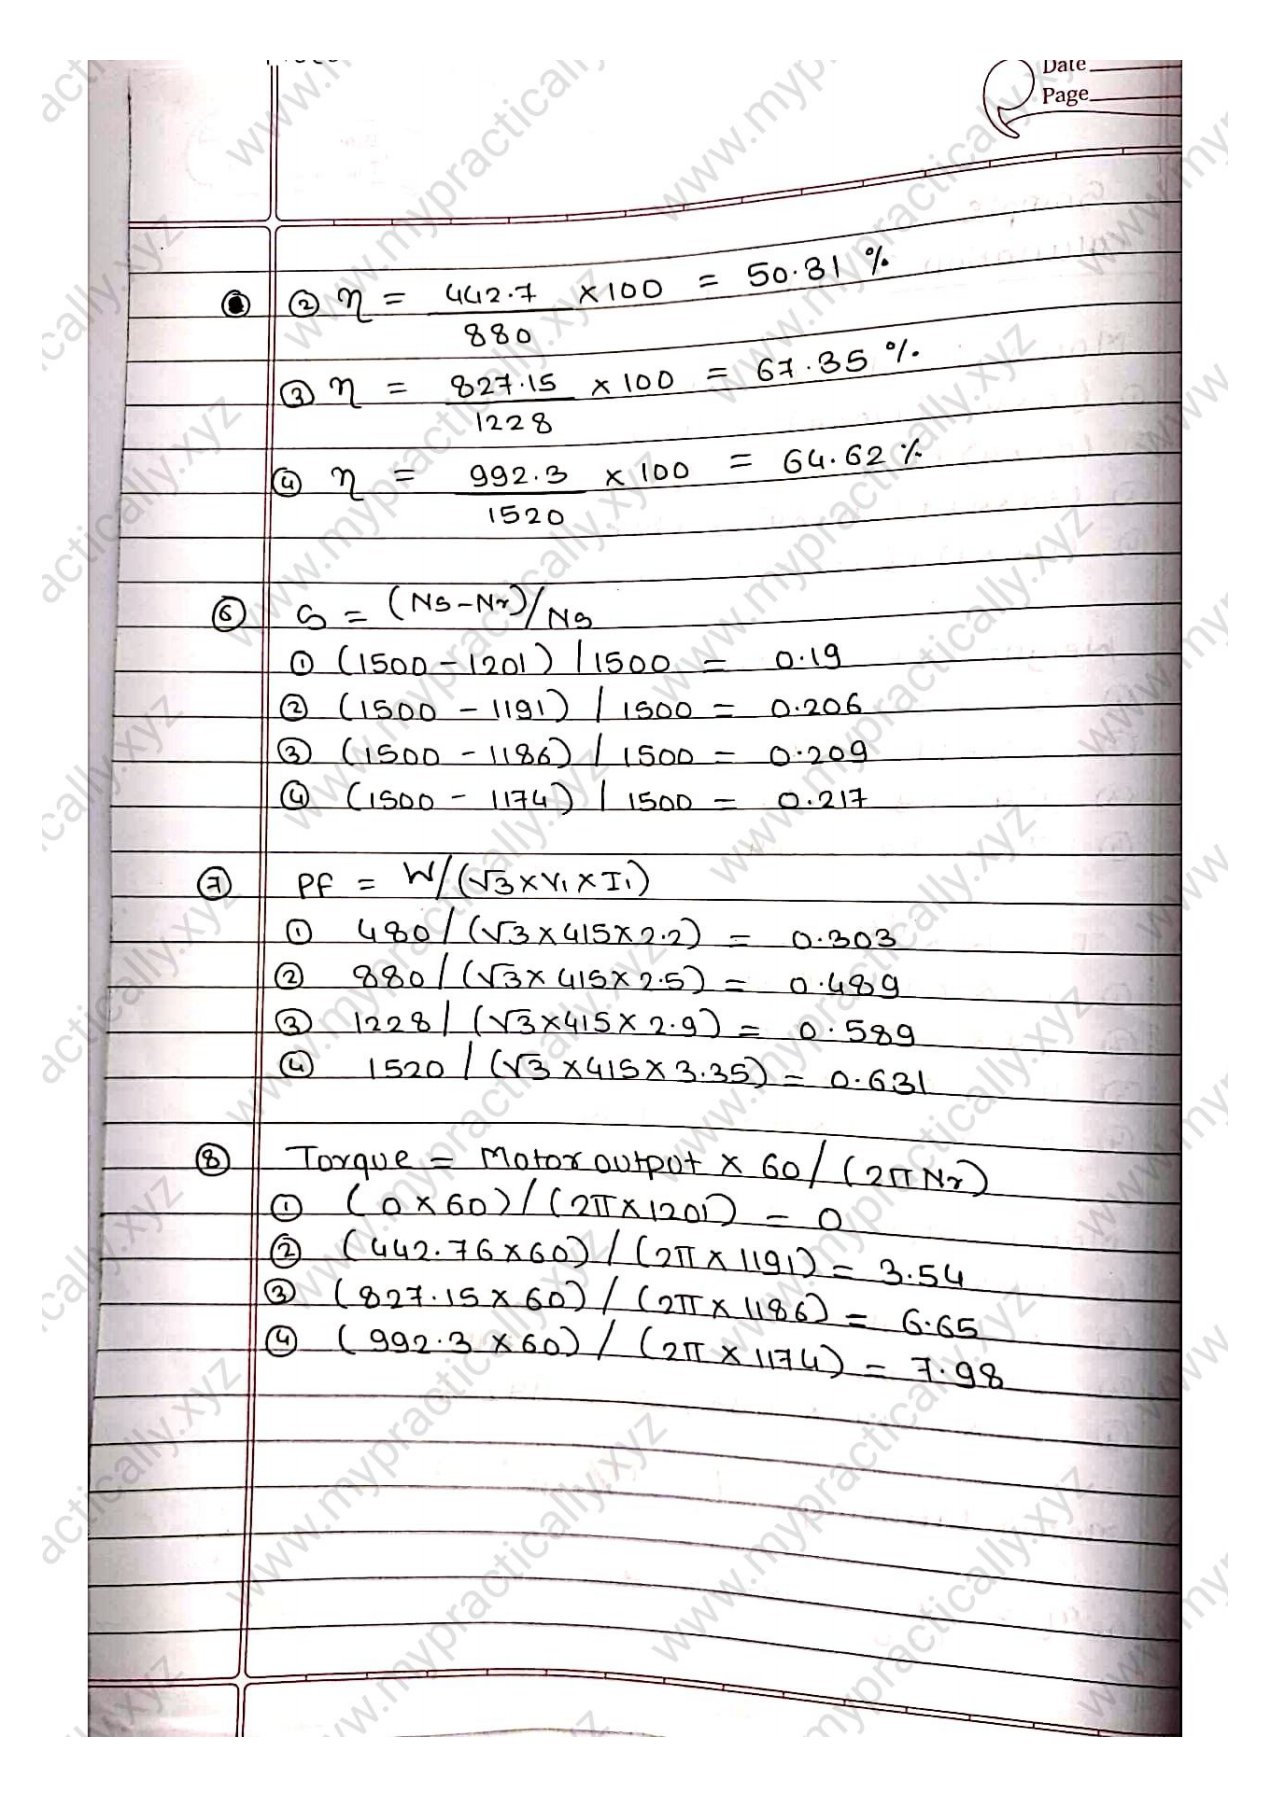 Date
Page
② η = 442.7 / 880 × 100 = 50.31 %
③ η = 827.15 / 1228 × 100 = 67.35 %
④ η = 992.3 / 1520 × 100 = 64.62 %
⑥ S = (Ns-Nr)/Ns
① (1500 - 1201) / 1500 = 0.19
② (1500 - 1191) / 1500 = 0.206
③ (1500 - 1186) / 1500 = 0.209
④ (1500 - 1174) / 1500 = 0.217
⑦ PF = W/(√3 × V₁ × I₁)
① 480 / (√3 × 415 × 2.2) = 0.303
② 880 / (√3 × 415 × 2.5) = 0.489
③ 1228 / (√3 × 415 × 2.9) = 0.589
④ 1520 / (√3 × 415 × 3.35) = 0.631
⑧ Torque = Motor output × 60 / (2πNr)
① (0 × 60) / (2π × 1201) = 0
② (442.76 × 60) / (2π × 1191) = 3.54
③ (827.15 × 60) / (2π × 1186) = 6.65
④ (992.3 × 60) / (2π × 1174) = 7.98
www.mypractically.xyz